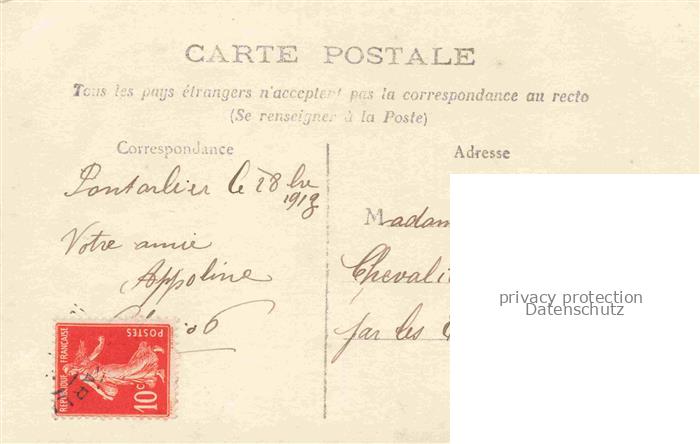 CARTE POSTALE
Tous les pays étrangers n'acceptent pas la correspondance au recto
(Se renseigner à la Poste)
Correspondance
Adresse
Pontarlier le 28 bre
1918
Votre amie
Appoline
Madam
Chevali
par les
privacy protection
Datenschutz
POSTES
REPUBLIQUE FRANÇAISE
10c